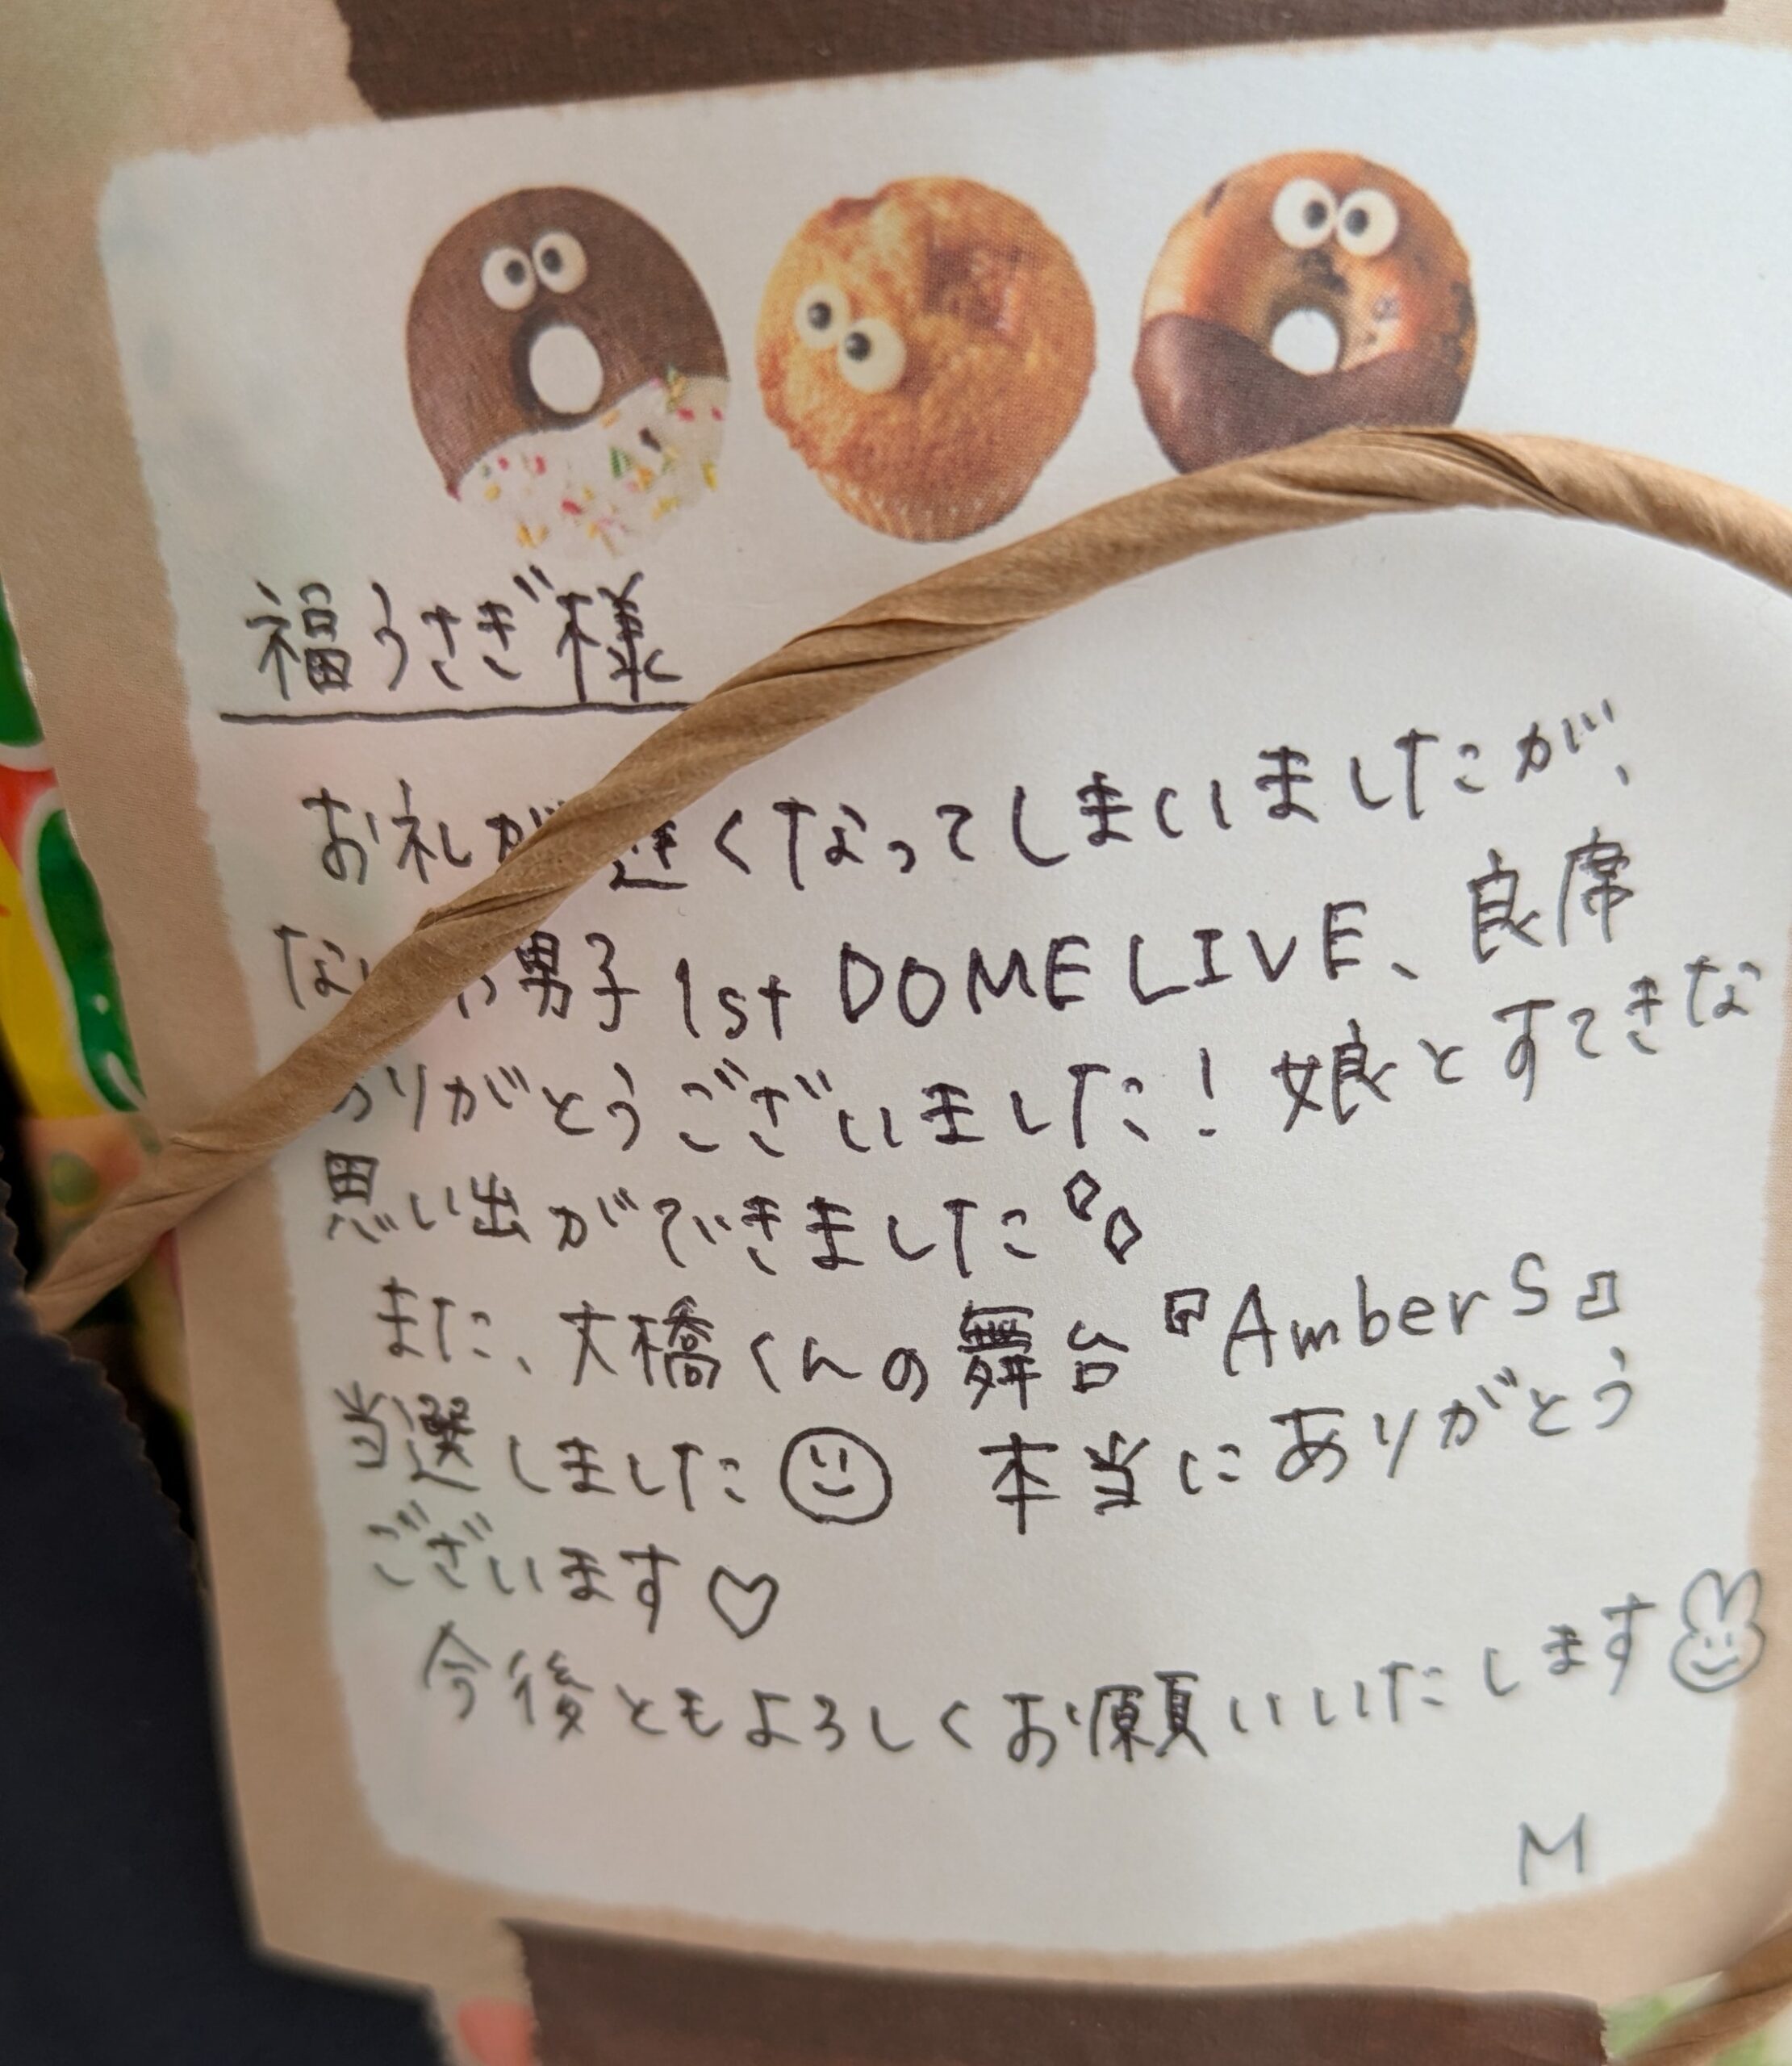 福うさぎ様
お礼が遅くなってしまいましたが、
なにわ男子 1st DOME LIVE、良席
ありがとうございました！娘とすてきな
思い出ができました
また、大橋くんの舞台『AmberS』
当選しました 本当にありがとう
ございます♡
今後ともよろしくお願いいたします
M